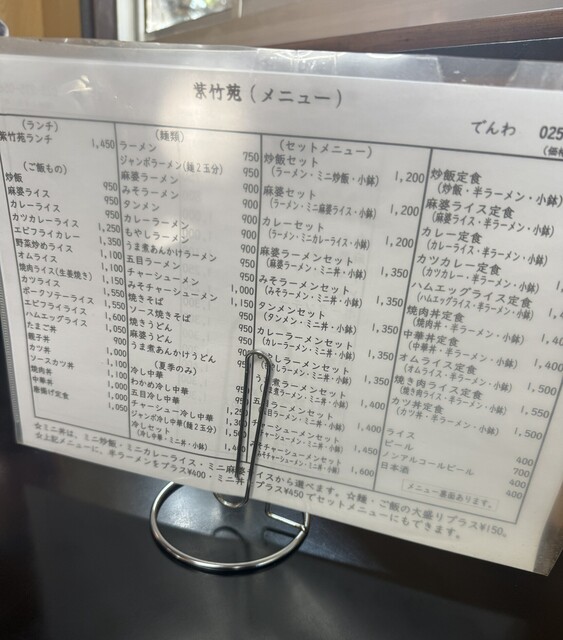 紫竹苑(メニュー)
でんわ 025
(ランチ)
紫竹苑ランチ 1,450
(ご飯もの)
炒飯 950
麻婆ライス 950
カレーライス 950
カツカレーライス
エビフライカレー
野菜炒めライス
オムライス
焼肉ライス(生姜焼き)
カツライス
ポークソテーライス
エビフライライス
ハムエッグライス
たまご丼
親子丼
カツ丼
ソースカツ丼
焼肉丼
中華丼
唐揚げ定食 1,050
(麺類)
ラーメン 750
ジャンボラーメン(麺2玉分) 950
麻婆ラーメン
みそラーメン
タンメン
カレーラーメン
もやしラーメン
うま煮あんかけラーメン
五目ラーメン
チャーシューメン
みそチャーシューメン
焼きそば
ソース焼きそば
焼きうどん
麻婆うどん
うま煮あんかけうどん
(夏季のみ)
冷し中華
わかめ冷し中華
五目冷し中華
チャーシュー冷し中華
ジャンボ冷し中華(麺2玉分)
冷しセット
(冷し中華・ミニ丼・小鉢)
(セットメニュー)
炒飯セット
(ラーメン・ミニ炒飯・小鉢) 1,200
麻婆セット
(ラーメン・ミニ麻婆ライス・小鉢) 1,200
カレーセット
(ラーメン・ミニカレーライス・小鉢) 1,200
麻婆ラーメンセット
(麻婆ラーメン・ミニ丼・小鉢) 1,350
みそラーメンセット
(みそラーメン・ミニ丼・小鉢) 1,350
タンメンセット
(タンメン・ミニ丼・小鉢) 1,350
カレーラーメンセット
(カレーラーメン・ミニ丼・小鉢) 1,350
ラーメンセット
ラーメン・ミニ丼・小鉢) 1,350
煮ラーメンセット
煮ラーメン・ミニ丼・小鉢) 1,400
五目ラーメンセット
目ラーメン・ミニ丼・小鉢) 1,400
チャーシューメンセット
チャーシューメン・ミニ丼・小鉢) 1,450
みそチャーシューメンセット
みそチャーシューメン・ミニ丼・小鉢) 1,600
炒飯定食
(炒飯・半ラーメン・小鉢)
麻婆ライス定食
(麻婆ライス・半ラーメン・小鉢)
カレー定食
(カレーライス・半ラーメン・小鉢)
カツカレー定食
(カツカレー・半ラーメン・小鉢)
ハムエッグライス定食
(ハムエッグライス・半ラーメン・小鉢)
焼肉丼定食
(焼肉丼・半ラーメン・小鉢)
中華丼定食
(中華丼・半ラーメン・小鉢) 1,400
オムライス定食
(オムライス・半ラーメン・小鉢) 1,500
焼き肉ライス定食
(焼き肉ライス・半ラーメン・小鉢) 1,550
カツ丼定食
(カツ丼・半ラーメン・小鉢) 1,500
ライス
ビール
ノンアルコールビール
日本酒
メニュー裏面あります。
☆ミニ丼は、ミニ炒飯・ミニカレーライス・ミニ麻婆ライスから選べます。☆麺・ご飯の大盛りプラス¥150。
☆上記メニューに、半ラーメンをプラス¥400・ミニ丼をプラス¥450でセットメニューにもできます。